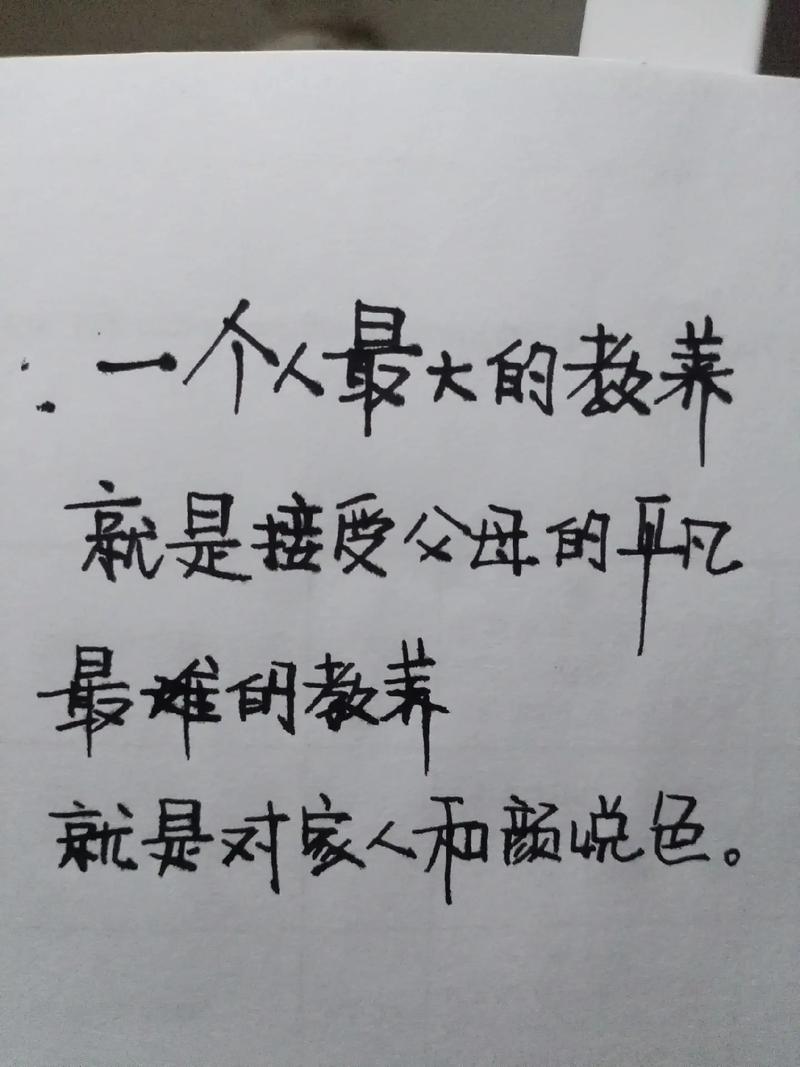 一个人最大的教养
就是接受父母的平凡
最难的教养
就是对家人和颜悦色。